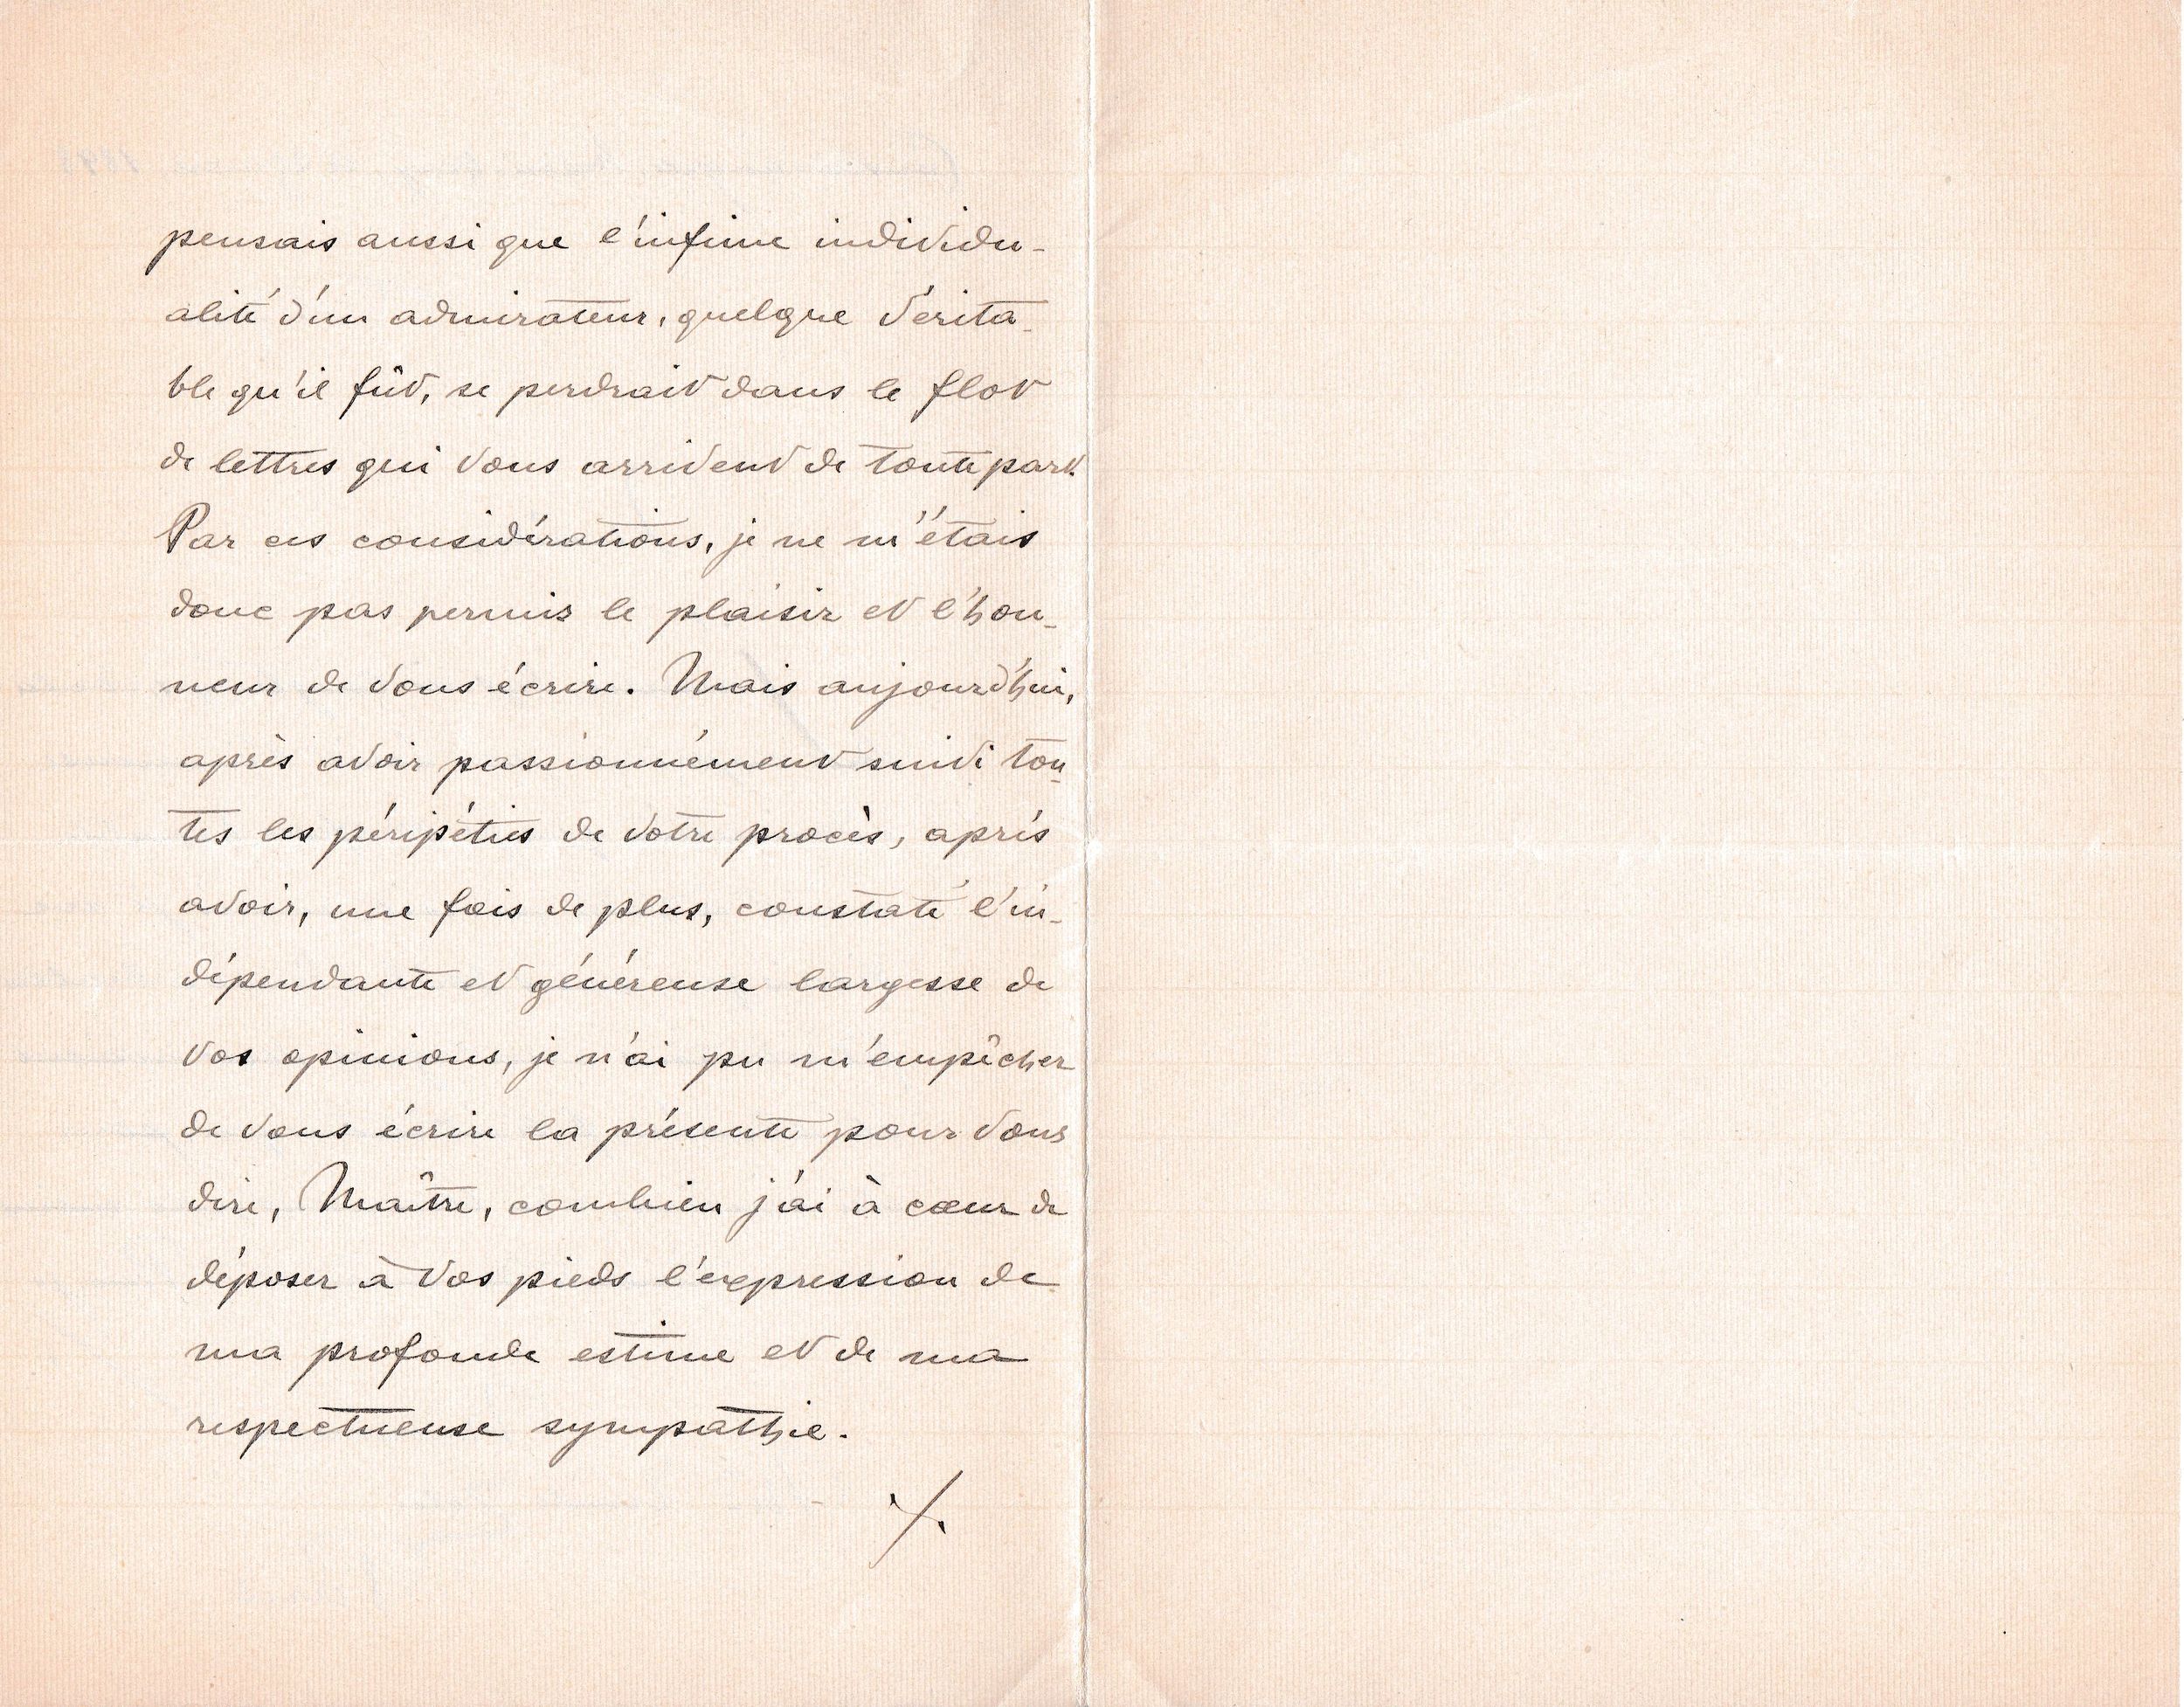 pensais aussi que l'infime individu-
alité d'un admirateur, quelque vérita-
ble qu'il fût, se perdrait dans le flot
de lettres qui vous arrivent de toute part.
Par ces considérations, je ne m'étais
donc pas permis le plaisir et l'hon-
neur de vous écrire. Mais aujourd'hui,
après avoir passionnément suivi tou-
tes les péripéties de votre procès, après
avoir, une fois de plus, constaté l'in-
dépendante et généreuse largesse de
vos opinions, je n'ai pu m'empêcher
de vous écrire la présente pour vous
dire, Maître, combien j'ai à cœur de
déposer à vos pieds l'expression de
ma profonde estime et de ma
respectueuse sympathie.
X.